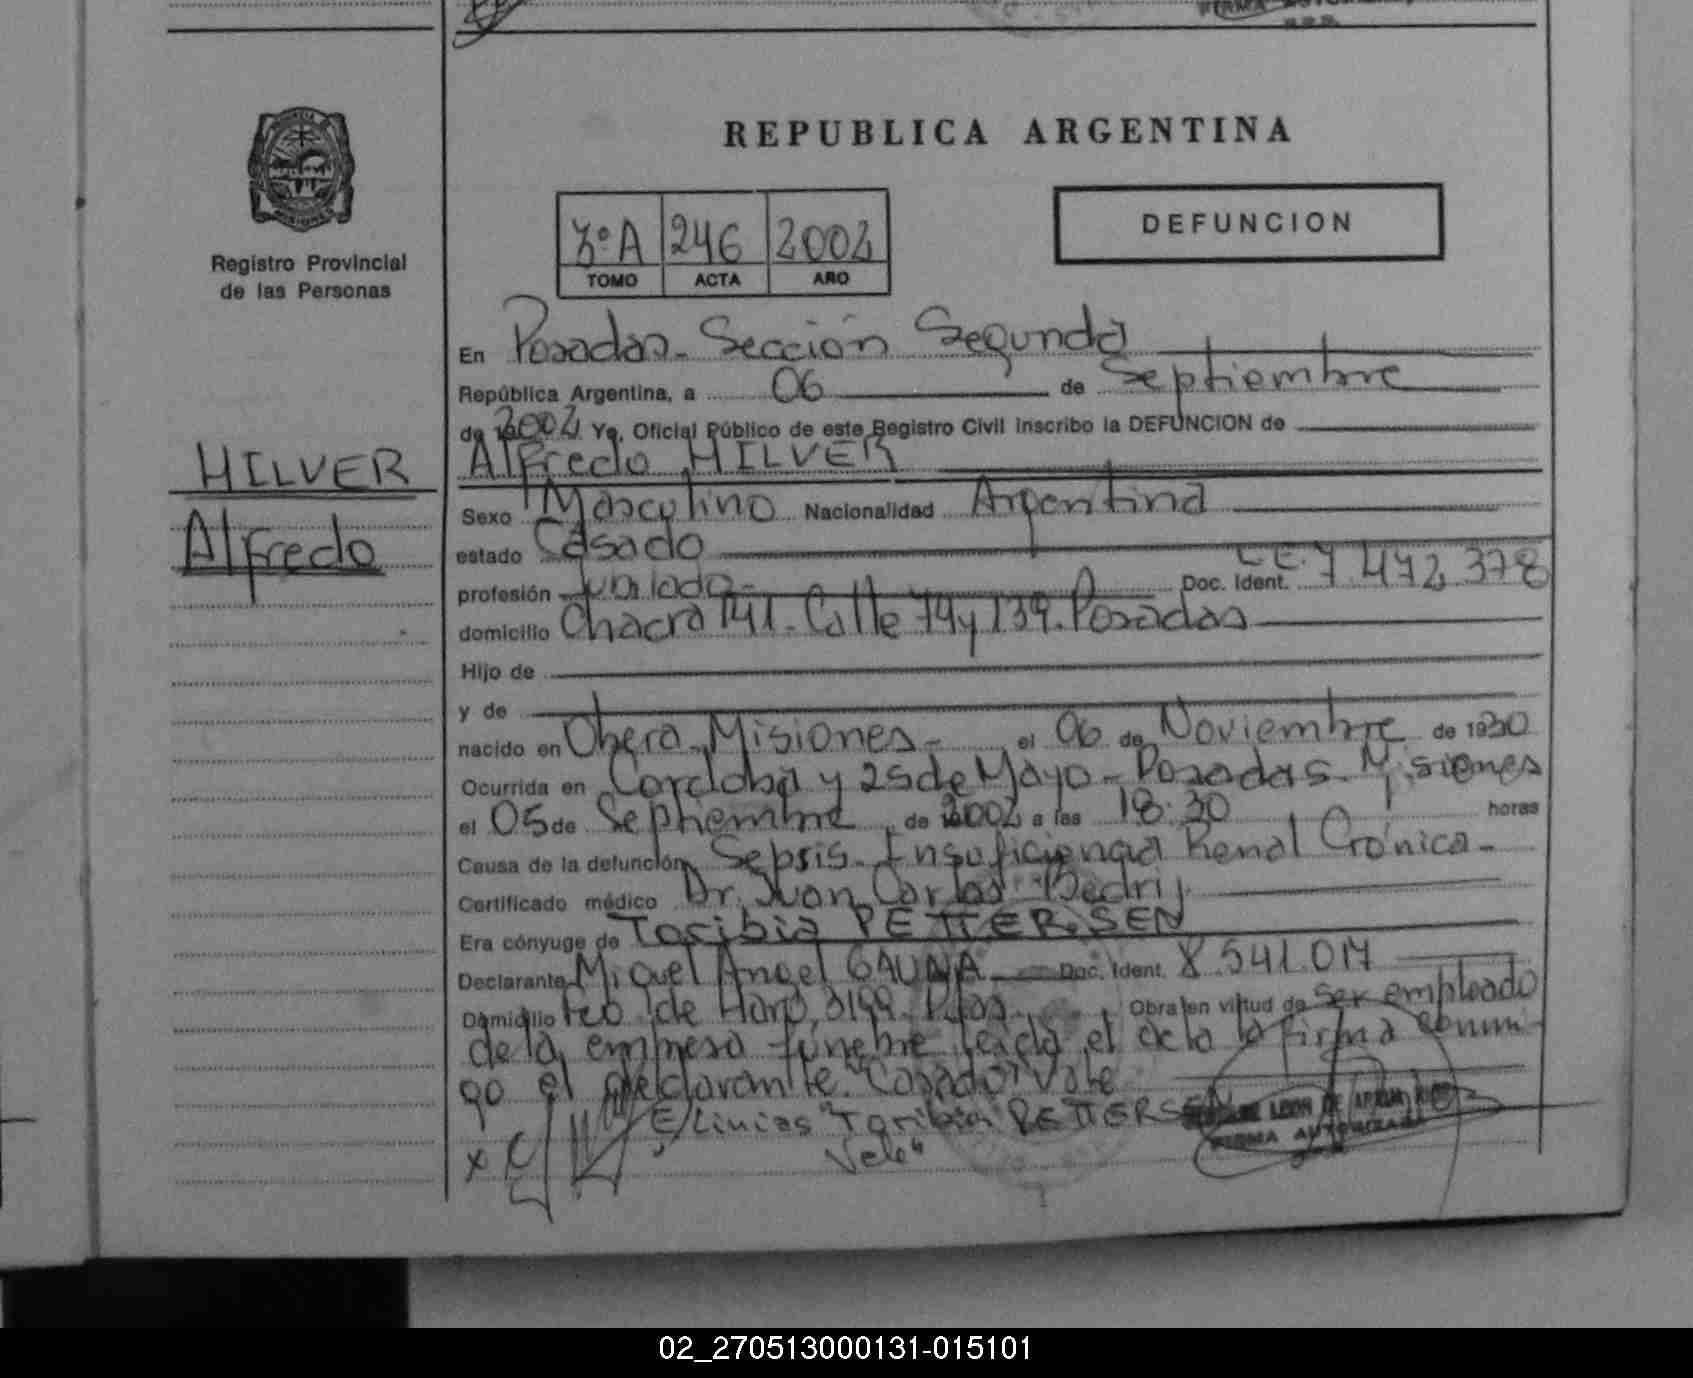 REPUBLICA ARGENTINA
DEFUNCION
3ºA 246 2002
TOMO ACTA AÑO
Registro Provincial
de las Personas
En Posadas - Sección Segunda
República Argentina, a 06 de Septiembre
de 2002 Yo, Oficial Público de este Registro Civil inscribo la DEFUNCION de
HILVER
Alfredo
Alfredo HILVER
Sexo Masculino Nacionalidad Argentina
estado Casado
profesión Jubilado - Doc. Ident. L.E. 7.472.378
domicilio Chacra 141 - Calle 74 y 139. Posadas
Hijo de
y de
nacido en Obera - Misiones - el 06 de Noviembre de 1930
Ocurrida en Cordoba y 25 de Mayo - Posadas - Misiones
el 05 de Septiembre de 2002 a las 18:30 horas
Causa de la defunción Sepsis - Insuficiencia Renal Crónica -
Certificado médico Dr. Juan Carlos Bedrij
Era cónyuge de Toribia PETTERSEN
Declarante Miguel Angel GAUNA Doc. Ident. 8.541.017
Domicilio Fco de Haro 3199. Pdas. Obra en virtud de ser empleado
de la empresa fúnebre leida el acta la firma conmi-
go el declarante "Casado" Vale
E/Linias "Toribia PETTERSEN
Vale"
FIRMA AUTORIZADA
02_270513000131-015101